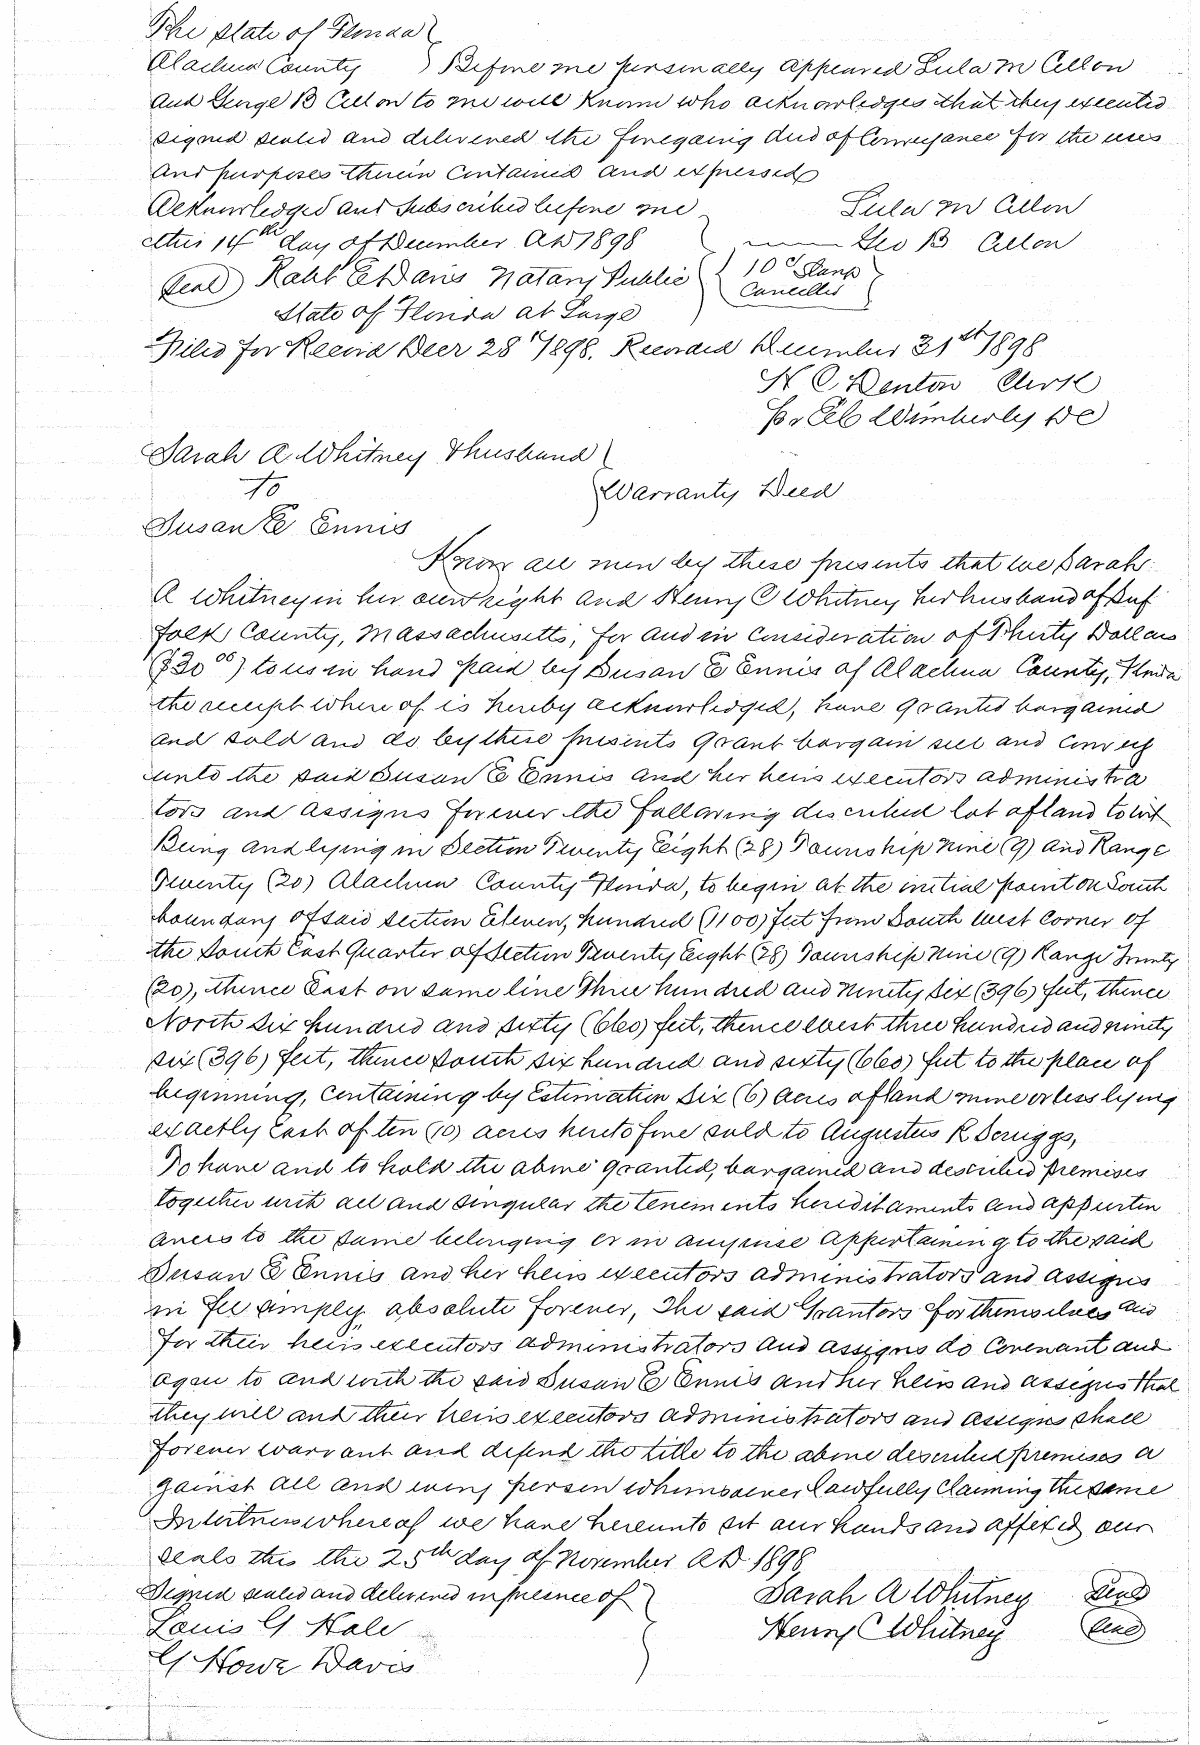 The State of Florida
Alachua County } Before me personally appeared Lula M Cellon
and George B Cellon to me well known who acknowledges that they executed
signed sealed and delivered the foregoing deed of Conveyance for the uses
and purposes therein contained and expressed
Acknowledged and subscribed before me Lula M Cellon
this 14th day of December AD 1898 Geo B Cellon
Seal Robt E Davis Notary Public { 10c Stamp
Cancelled
State of Florida at Large
Filed for Record Decr 28" 1898. Recorded December 31st 1898
H C Denton Clerk
Wimberly DC
Sarah A Whitney & husband
to } Warranty Deed
Susan E Ennis
Know all men by these presents that we Sarah
A Whitney in her own right and Henry C Whitney her husband of Suf
folk County, Massachusetts, for and in consideration of Thirty Dollars
($30 00) to us in hand paid by Susan E Ennis of Alachua County, Florida
the receipt where of is hereby acknowledged, have granted bargained
and sold and do by these presents grant bargain sell and convey
unto the said Susan E Ennis and her heirs executors administra
tors and assigns forever the following described lot of land to wit
Being and lying in Section Twenty Eight (28) Township Nine (9) and Range
Twenty (20) Alachua County Florida, to begin at the initial point on South
boundary of said section Eleven, hundred (1100) feet from South West Corner of
the South East Quarter of Section Twenty Eight (28) Township Nine (9) Range Twenty
(20), thence East on same line Three hundred and Ninety Six (396) feet, thence
North six hundred and sixty (660) feet, thence west three hundred and ninety
six (396) feet, thence South six hundred and sixty (660) feet to the place of
beginning, containing by Estimation six (6) acres of land more or less lying
exactly East of ten (10) acres heretofore sold to Augustus R Scruggs,
To have and to hold the above granted, bargained and described premises
together with all and singular the tenements hereditaments and appurten
ances to the same belonging or in anywise appertaining to the said
Susan E Ennis and her heirs executors administrators and assigns
in fee simply absolute forever, The said Grantors for themselves and
for their heirs executors administrators and assigns do Covenant and
agree to and with the said Susan E Ennis and her heirs and assigns that
they will and their heirs executors administrators and assigns shall
forever warrant and defend the title to the above described premises a
gainst all and every person whomsoever lawfully claiming the same
In witness whereof we have hereunto set our hands and affixed our
seals this the 25th day of November AD 1898
Signed sealed and delivered in presence of Sarah A Whitney Seal
Louis G Hale Henry C Whitney Seal
G Howe Davis